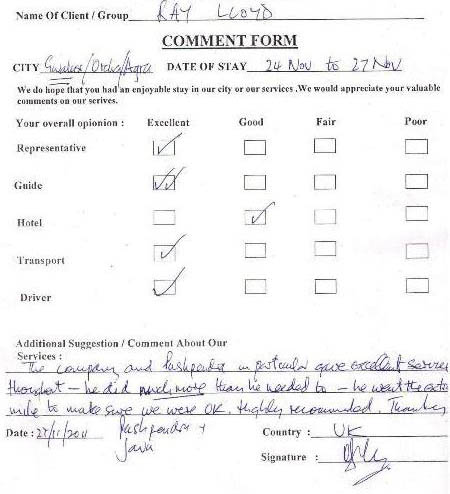 Name Of Client / Group RAY LLOYD
COMMENT FORM
CITY Gwalior/Orcha/Agra DATE OF STAY 24 Nov to 27 Nov
We do hope that you had an enjoyable stay in our city or our services .We would appreciate your valuable
comments on our serives.
Your overall opionion : Excellent Good Fair Poor
Representative
Guide
Hotel
Transport
Driver
Additional Suggestion / Comment About Our
Services :
The company and Pushpendra in particular gave excellent service
throughout - he did much more than he needed to - he went the extra
mile to make sure we were OK. Highly recommended. Thankyou
Date : 27/11/2011 Pushpendra + Country : UK
Signature :